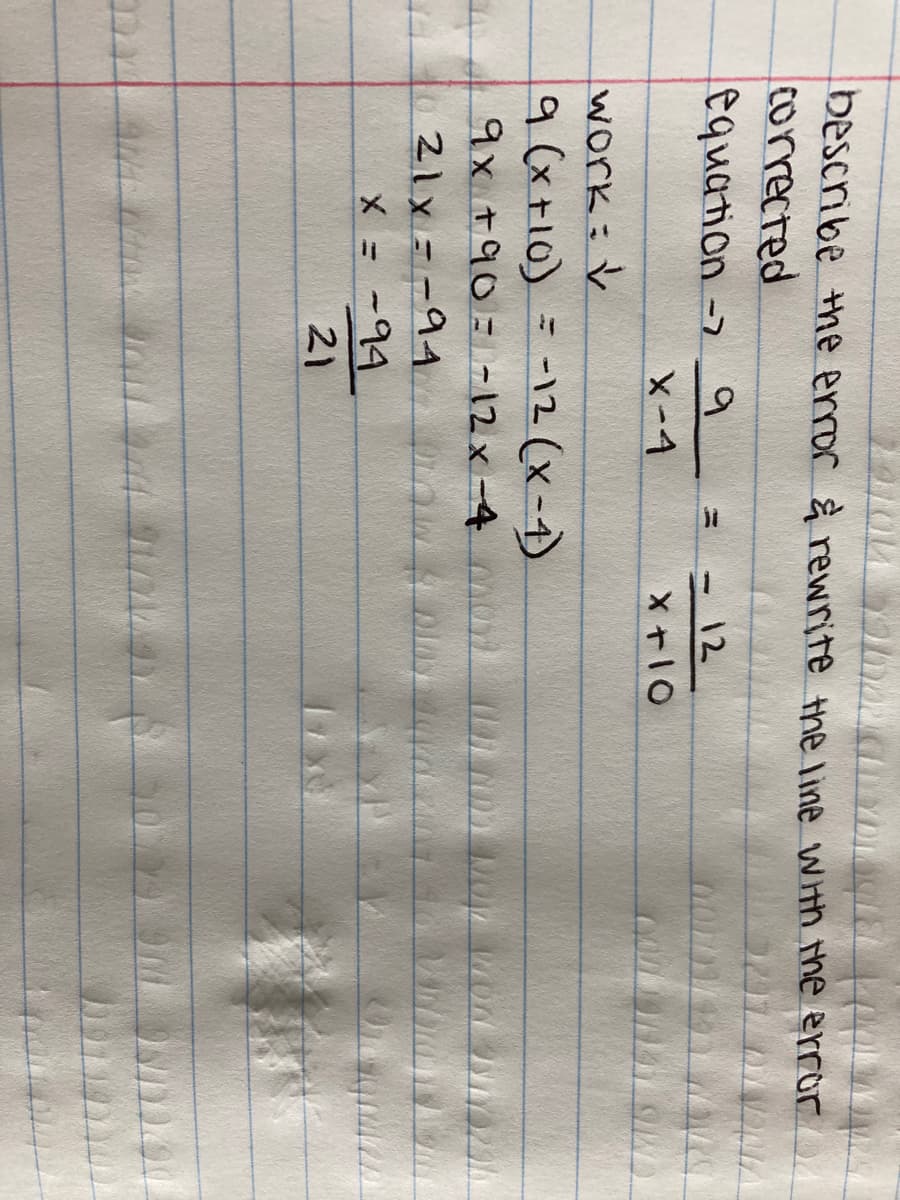 bescribe the error & rewrite the line with the error
corrected
equation → 9/(x-4) = -12/(x+10)
work: ↓
9(x+10) = -12(x-4)
9x+90 = -12x-4
21x = -94
x = -94/21